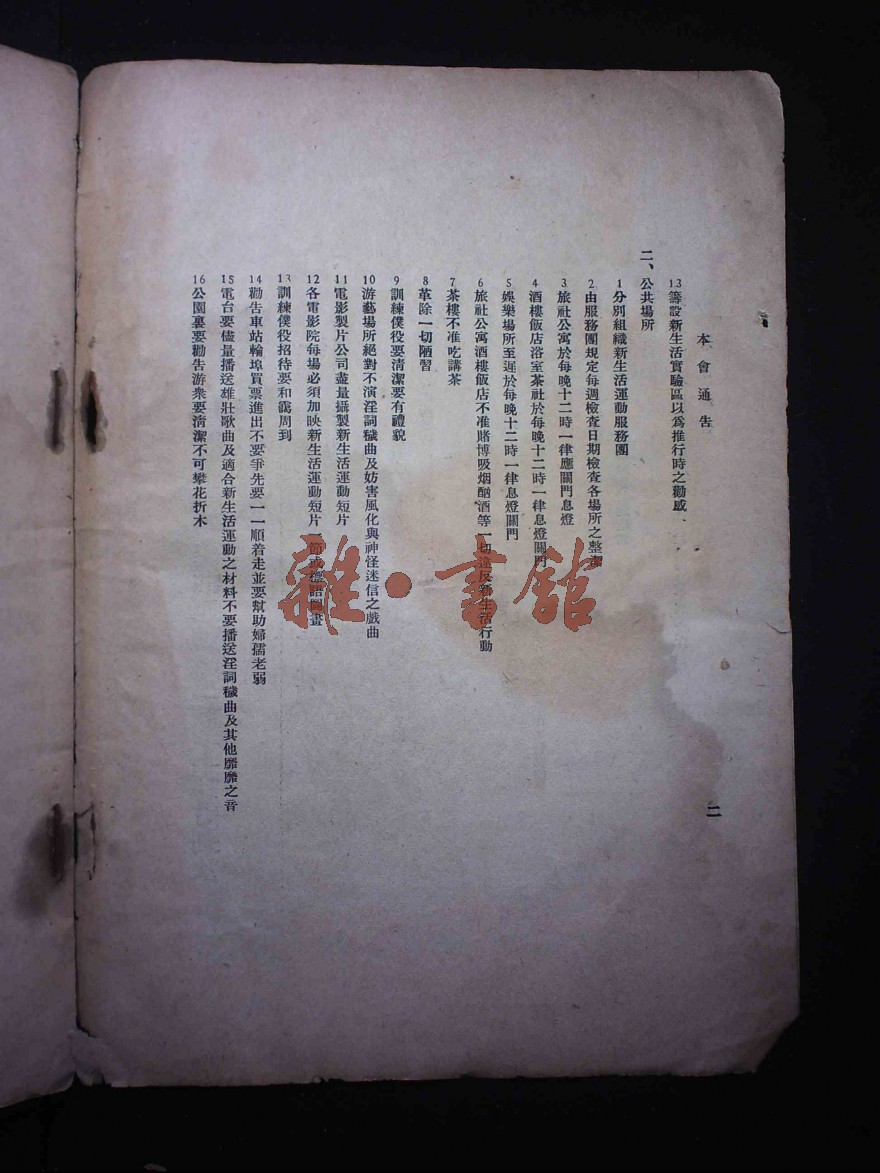 本會通告
二
13籌設新生活實驗區以爲推行時之勸感
二、公共場所
1分別組織新生活運動服務團
2由服務團規定每週檢查日期檢查各場所之整潔
3旅社公寓於每晚十二時一律應關門息燈
4酒樓飯店浴室茶社於每晚十二時一律息燈關門
5娛樂場所至遲於每晚十二時一律息燈關門
6旅社公寓酒樓飯店不准賭博吸烟酗酒等一切違反新生活行動
7茶樓不准吃講茶
8革除一切陋習
9訓練僕役要清潔要有禮貌
10游藝場所絕對不演淫詞穢曲及妨害風化與神怪迷信之戲曲
11電影製片公司盡量攝製新生活運動短片
12各電影院每場必須加映新生活運動短片一節或標語圖畫
13訓練僕役招待要和藹周到
14勸告車站輪埠買票進出不要爭先要一一順着走並要幫助婦孺老弱
15電台要儘量播送雄壯歌曲及適合新生活運動之材料不要播送淫詞穢曲及其他靡靡之音
16公園裏要勸告游衆要清潔不可攀花折木
雜·書館